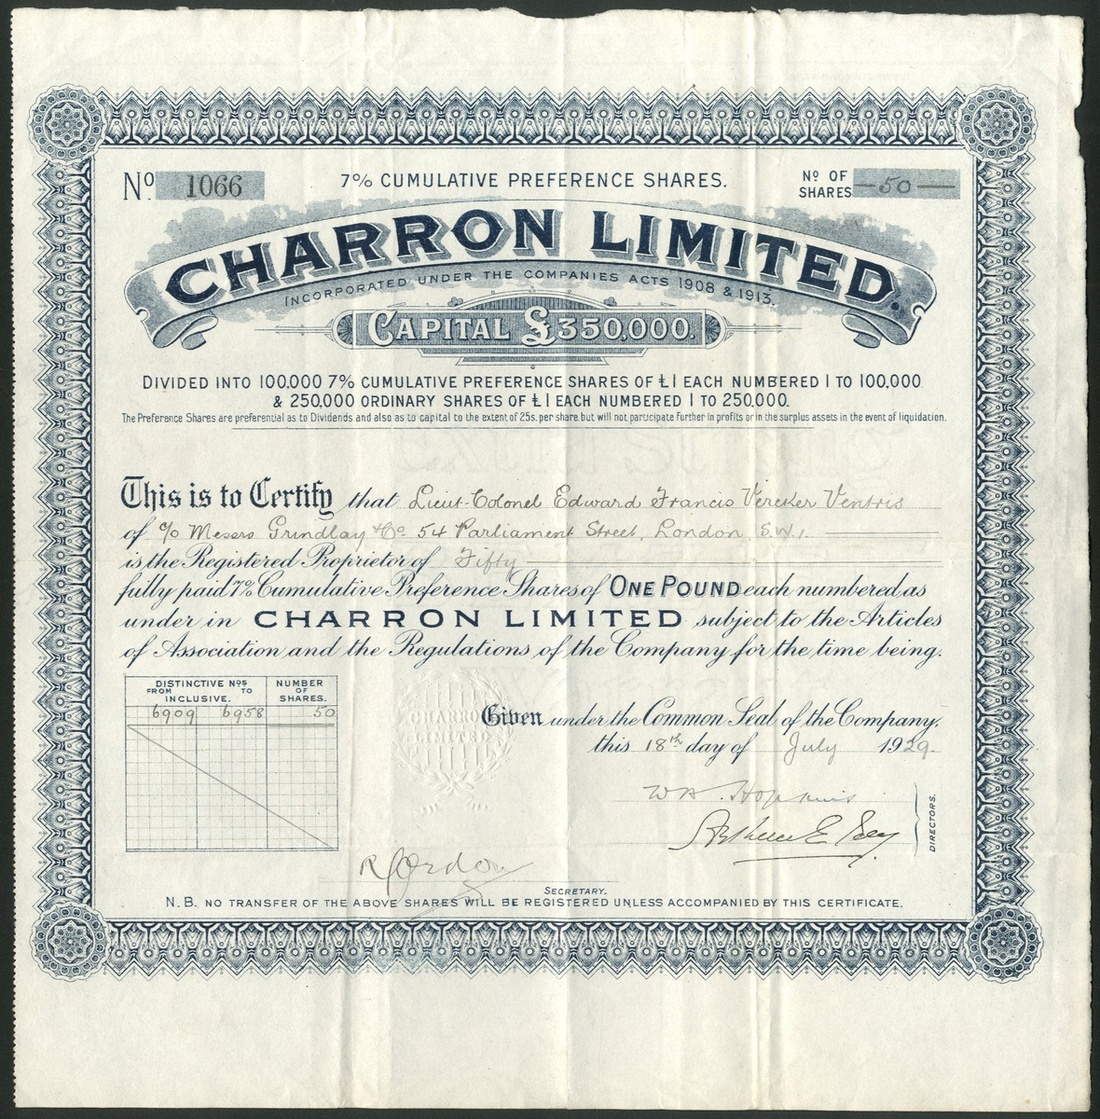 No. 1066
7% CUMULATIVE PREFERENCE SHARES.
No. OF SHARES —50—
CHARRON LIMITED.
INCORPORATED UNDER THE COMPANIES ACTS 1908 & 1913.
CAPITAL £350,000.
DIVIDED INTO 100,000 7% CUMULATIVE PREFERENCE SHARES OF £1 EACH NUMBERED 1 TO 100,000
& 250,000 ORDINARY SHARES OF £1 EACH NUMBERED 1 TO 250,000.
The Preference Shares are preferential as to Dividends and also as to capital to the extent of 25s. per share but will not participate further in profits or in the surplus assets in the event of liquidation.
This is to Certify that Lieut-Colonel Edward Francis Vereker Ventris
of c/o Messrs Grindlay & Co 54 Parliament Street, London S.W.1.
is the Registered Proprietor of Fifty
fully paid 7% Cumulative Preference Shares of ONE POUND each numbered as
under in CHARRON LIMITED subject to the Articles
of Association and the Regulations of the Company for the time being.
DISTINCTIVE Nos. FROM TO INCLUSIVE. NUMBER OF SHARES.
6909 6958 50
CHARRON LIMITED
Given under the Common Seal of the Company,
this 18th day of July 1929.
W.H. Hopkins
DIRECTORS.
SECRETARY.
N.B. NO TRANSFER OF THE ABOVE SHARES WILL BE REGISTERED UNLESS ACCOMPANIED BY THIS CERTIFICATE.